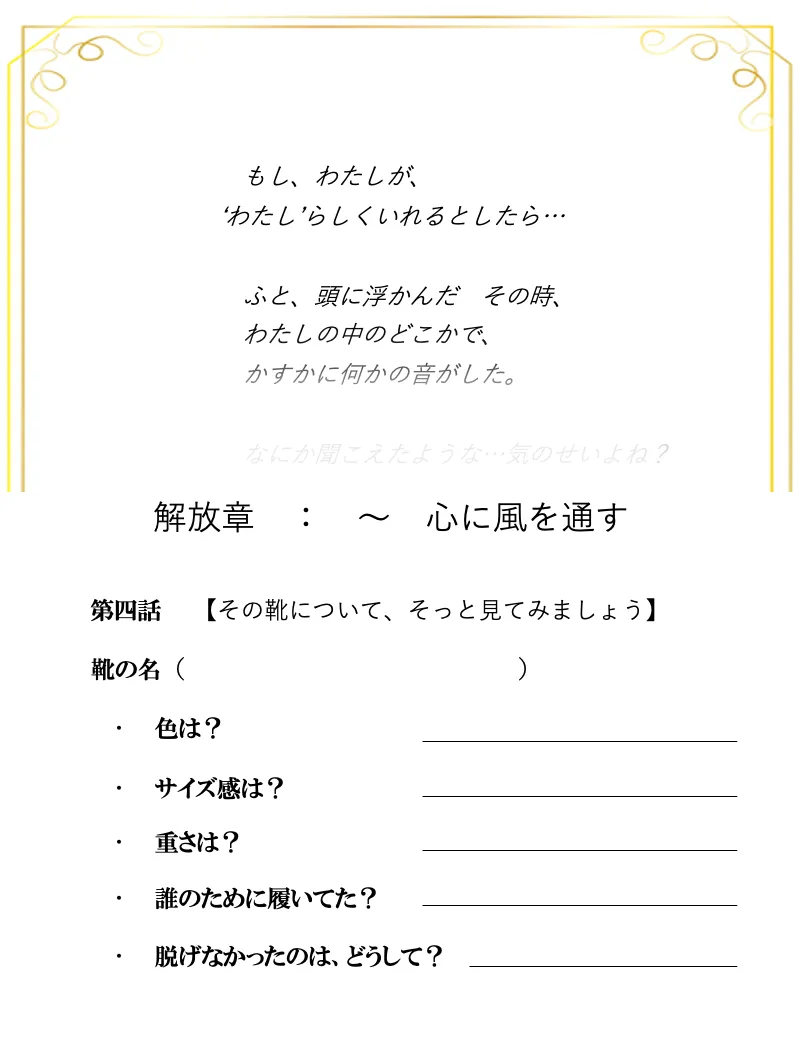 もし、わたしが、
‘わたし’らしくいれるとしたら…
ふと、頭に浮かんだ　その時、
わたしの中のどこかで、
かすかに何かの音がした。
なにか聞こえたような…気のせいよね？
解放章　：　～　心に風を通す
第四話　【その靴について、そっと見てみましょう】
靴の名（　　　　　　　　　　　　　　）
・　色は？
・　サイズ感は？
・　重さは？
・　誰のために履いてた？
・　脱げなかったのは、どうして？